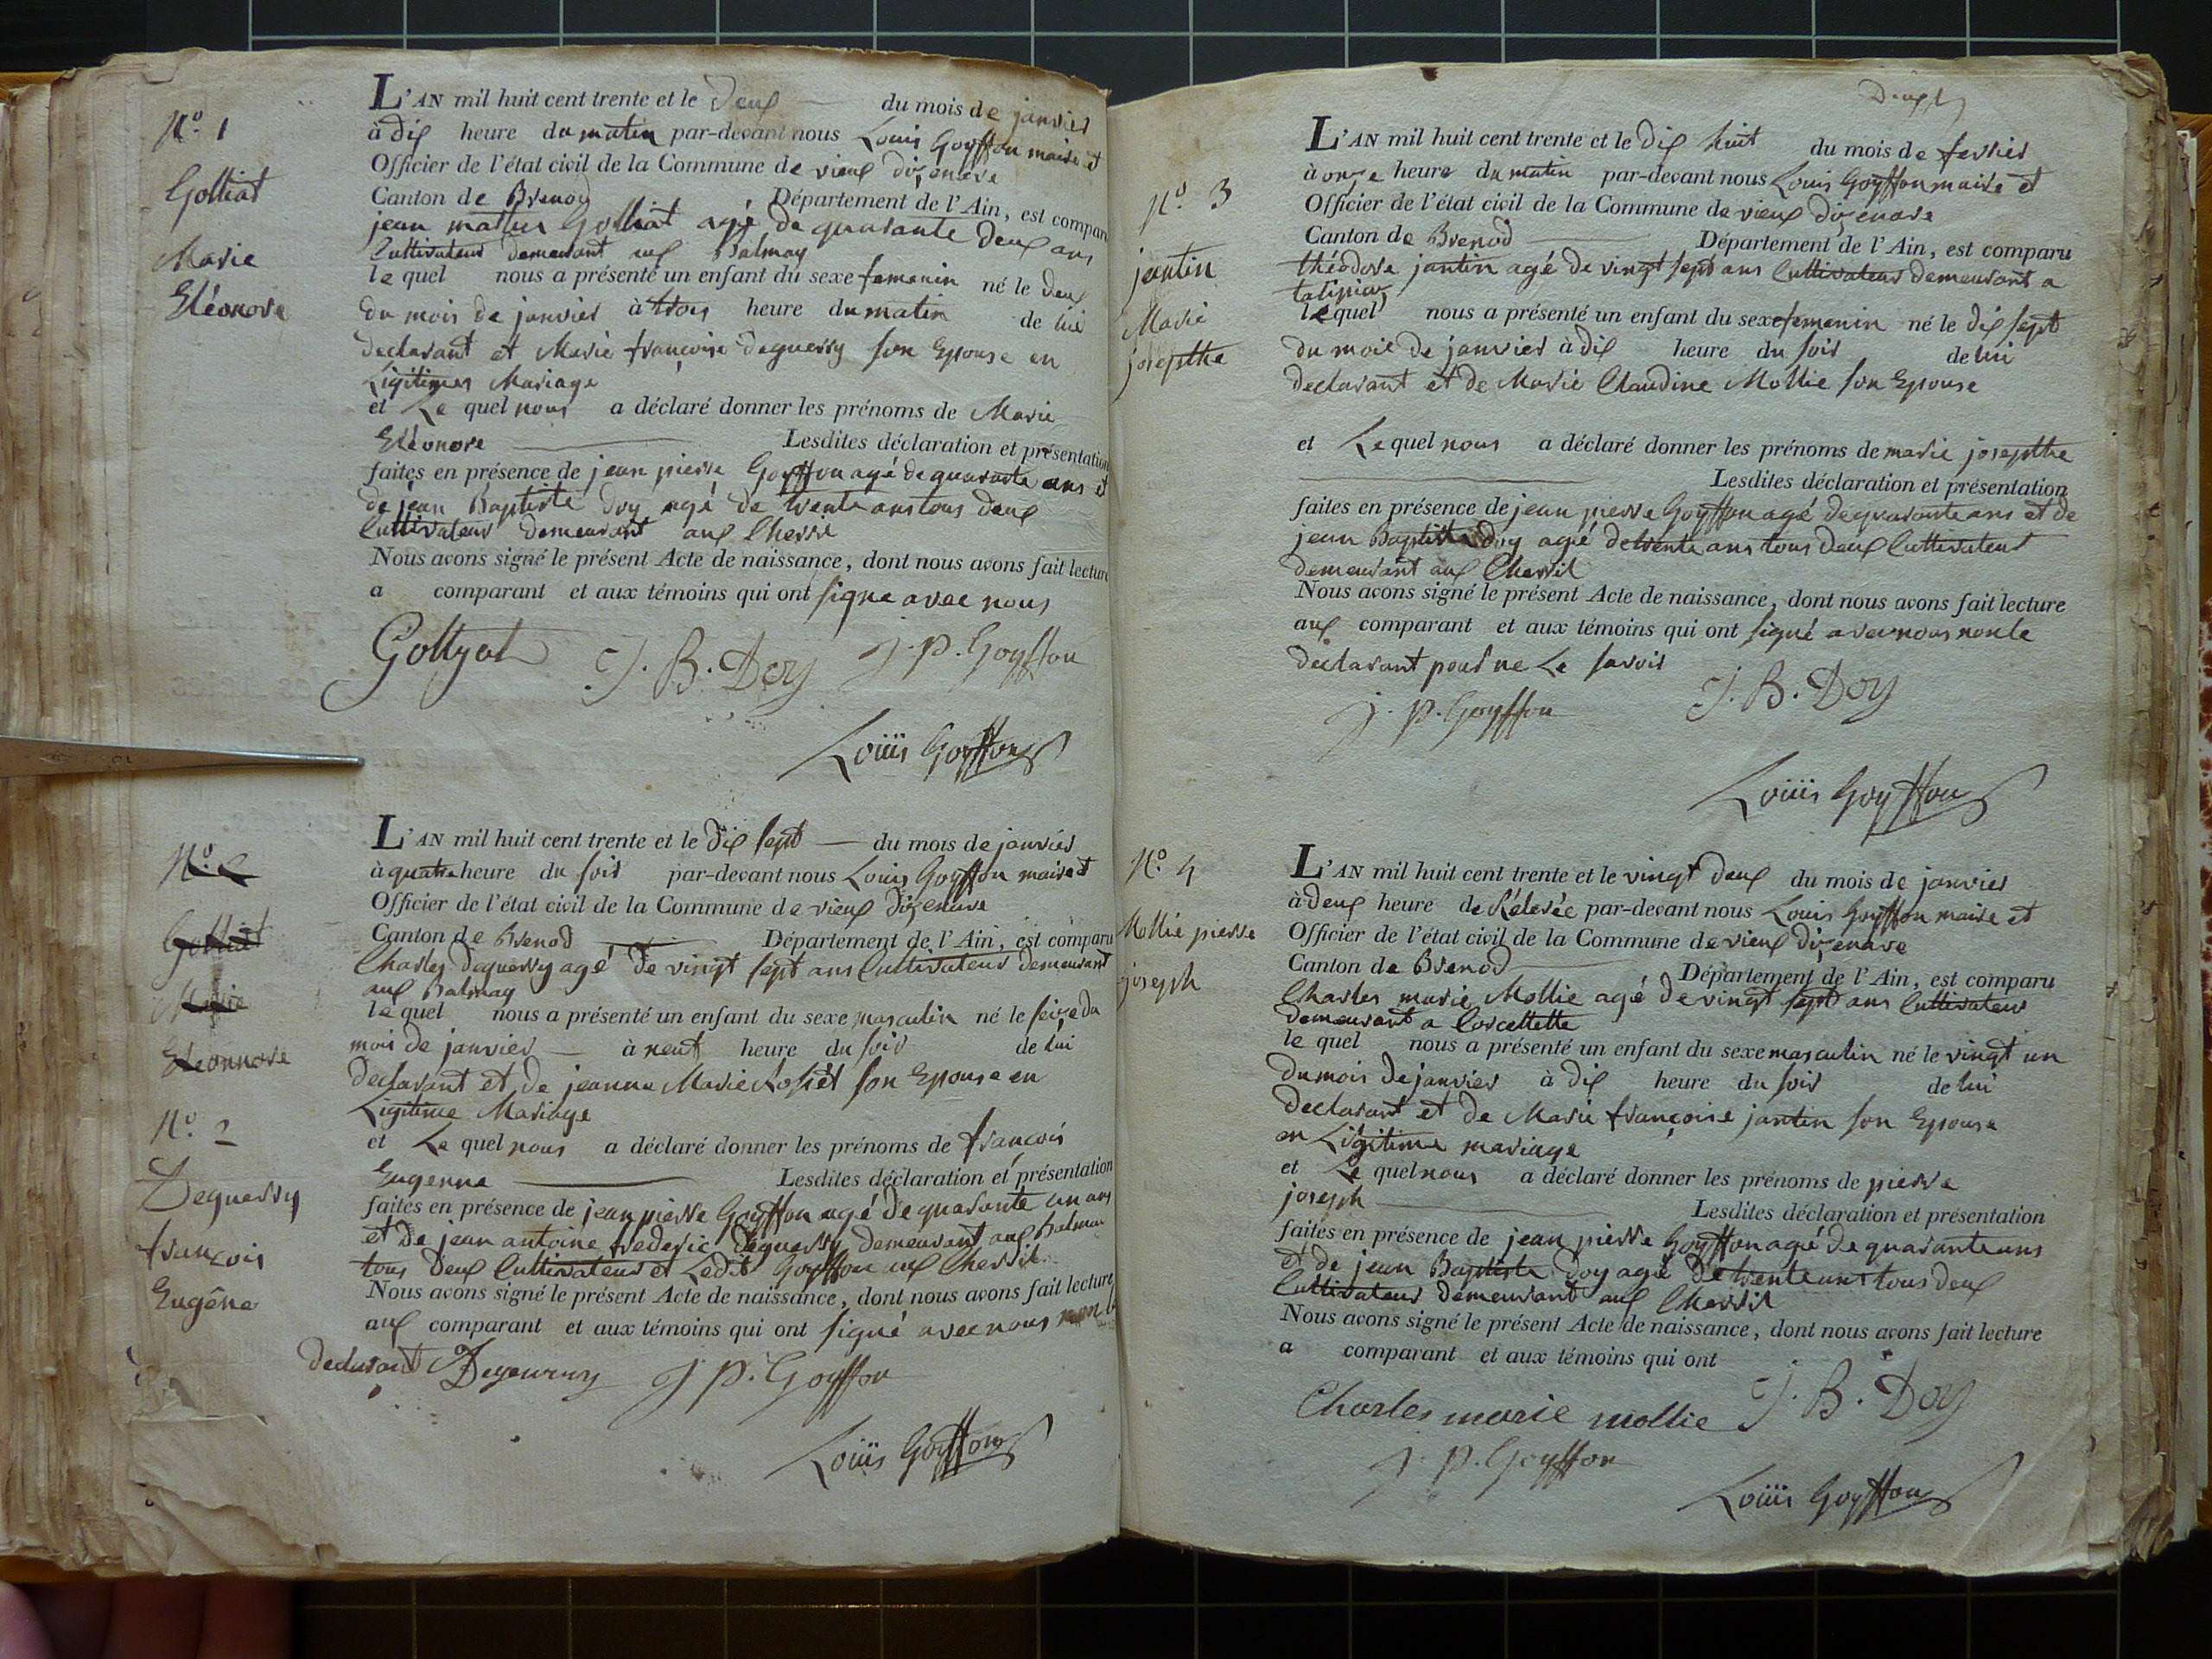 N.º 1
Golliat
Marie
Eléonore
L'AN mil huit cent trente et le deux du mois de janvier
à dix heure du matin par-devant nous Louis Goyffon maire et
Officier de l'état civil de la Commune de vieux dizenave
Canton de Brenod Département de l'Ain, est compar
jean Golliat agé de quarante deux ans
Cultivateur demeurant aux Balmay
le quel nous a présenté un enfant du sexe femenin né le deux
du mois de janvier à trois heure du matin de lui
declarant et Marie françoise deguerry son Epouse en
Ligitimer Mariage
et Le quel nous a déclaré donner les prénoms de Marie
Eléonore Lesdites déclaration et présentation
faites en présence de jean pierre Goyffon agé de quarante ans et
de jean Baptiste Doy agé de trente ans tous deux
Cultivateur demeurant aux Chevril
Nous avons signé le présent Acte de naissance, dont nous avons fait lecture
a comparant et aux témoins qui ont signe avec nous
Gollyat J. B. Doy J. P. Goyffon
Louis Goyffon
N.º 2
Golliat
Marie
Eleonnore
N.º 2
Deguerry
françois
Eugène
L'AN mil huit cent trente et le dix sept du mois de janvier
à quatre heure du soir par-devant nous Louis Goyffon maire et
Officier de l'état civil de la Commune de vieux dizenave
Canton de Brenod Département de l'Ain, est comparu
Charles deguerry agé de vingt sept ans Cultivateur demeurant
aux Balmay
le quel nous a présenté un enfant du sexe masculin né le seize du
mois de janvier à neuf heure du soir de lui
declarant et de jeanne Marie son Epouse en
Ligitime Mariage
et Le quel nous a déclaré donner les prénoms de françois
Eugenne Lesdites déclaration et présentation
faites en présence de jean pierre Goyffon agé de quarante un ans
et de jean antoine frederic deguerry demeurant aux Balmay
tous deux Cultivateur et Ledit Goyffon aux Chevril
Nous avons signé le présent Acte de naissance, dont nous avons fait lecture
aux comparant et aux témoins qui ont signé avec nous non le
declarant J P. Goyffon
Louis Goyffon
N.º 3
jantin
Marie
josepthe
L'AN mil huit cent trente et le dix huit du mois de fevrier
à onze heure du matin par-devant nous Louis Goyffon maire et
Officier de l'état civil de la Commune de vieux dizenave
Canton de Brenod Département de l'Ain, est comparu
théodore jantin agé de vingt sept ans Cultivateur demeurant a
le quel nous a présenté un enfant du sexe femenin né le dix sept
du mois de janvier à dix heure du soir de lui
declarant et de Marie Claudine Mollie son Epouse
et Le quel nous a déclaré donner les prénoms de marie josepthe
Lesdites déclaration et présentation
faites en présence de jean pierre Goyffon agé de quarante ans et de
jean Baptiste Doy agé de trente ans tous deux Cultivateur
demeurant aux Chevril
Nous avons signé le présent Acte de naissance, dont nous avons fait lecture
aux comparant et aux témoins qui ont signé avec nous non le
declarant pour ne Le savoir
J. P. Goyffon J. B. Doy
Louis Goyffon
N.º 4
Mollie pierre
joseph
L'AN mil huit cent trente et le vingt deux du mois de janvier
à deux heure de Rélevée par-devant nous Louis Goyffon maire et
Officier de l'état civil de la Commune de vieux dizenave
Canton de Brenod Département de l'Ain, est comparu
Charles marie Mollie agé de vingt sept ans Cultivateur
demeurant a Corcellette
le quel nous a présenté un enfant du sexe masculin né le vingt un
du mois de janvier à dix heure du soir de lui
declarant et de Marie françoise jantin son Epouse
en Ligitime mariage
et Le quel nous a déclaré donner les prénoms de pierre
joseph Lesdites déclaration et présentation
faites en présence de jean pierre Goyffon agé de quarante ans
et de jean Baptiste Doy agé de trente ans tous deux
Cultivateur demeurant aux Chevril
Nous avons signé le présent Acte de naissance, dont nous avons fait lecture
a comparant et aux témoins qui ont
Charles marie mollie J. B. Doy
J. P. Goyffon
Louis Goyffon